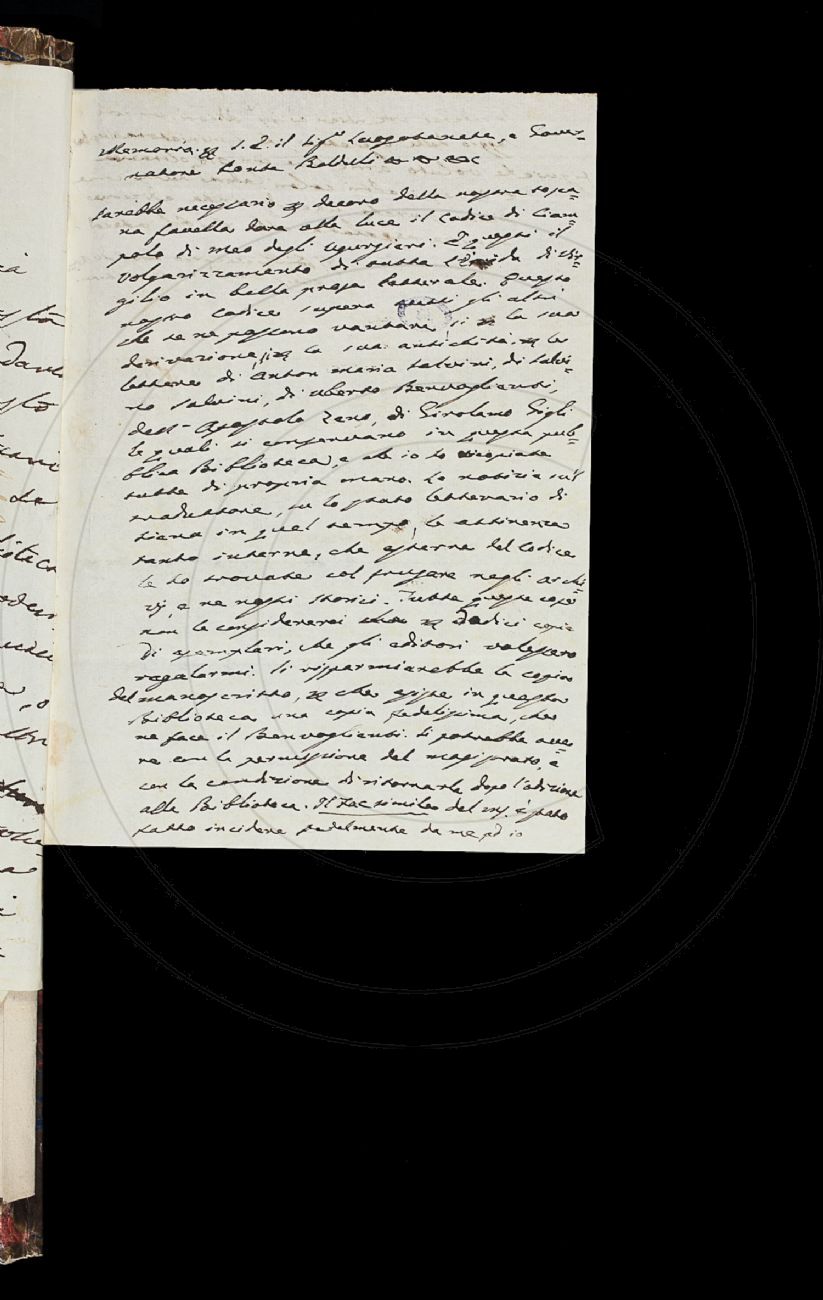 Memoria p S. E. il Sigr Luogotenente, e Gover-
natore Conte Baldelli
Sarebbe necessario p decoro della nostra tosca-
na favella dare alla luce il Codice di Ciam-
polo di Meo degli Ugurgieri. È questi il
volgarizzamento di tutta l'Eneida di Vir-
gilio in bella prosa letterale. Questo
nostro Codice supera tutti gli altri
che se ne possono vantare, si p la sua
derivazione, si p la sua antichità, p le
lettere di Anton Maria Salvini, di Salvi-
no Salvini, di Uberto Benvoglienti,
dell' Apostolo Zeno, di Girolamo Gigli
le quali si conservano in questa pub-
blica Biblioteca, e che io ho ricopiate
tutte di propria mano. Le notizie sul
traduttore, su lo stato letterario di
Siena in quel tempo, le attinenze
tanto interne, che esterne del Codice
le ho trovate col frugare negli archi-
vj, e ne nostri storici. Tutte queste cose
non le considererei che p dodici copie
di esemplari, che gli editori volessero
regalarmi. Si risparmierebbe la copia
del manoscritto, p che esiste in questa
Biblioteca una copia fedelissima, che
ne fece il Benvoglienti. Si potrebbe ave-
re con la permissione del magistrato, e
con la condizione di ritornarla dopo l'edizione
alla Biblioteca. Il Facsimileo del ms. è stato
fatto incidere fedelmente da me ed io